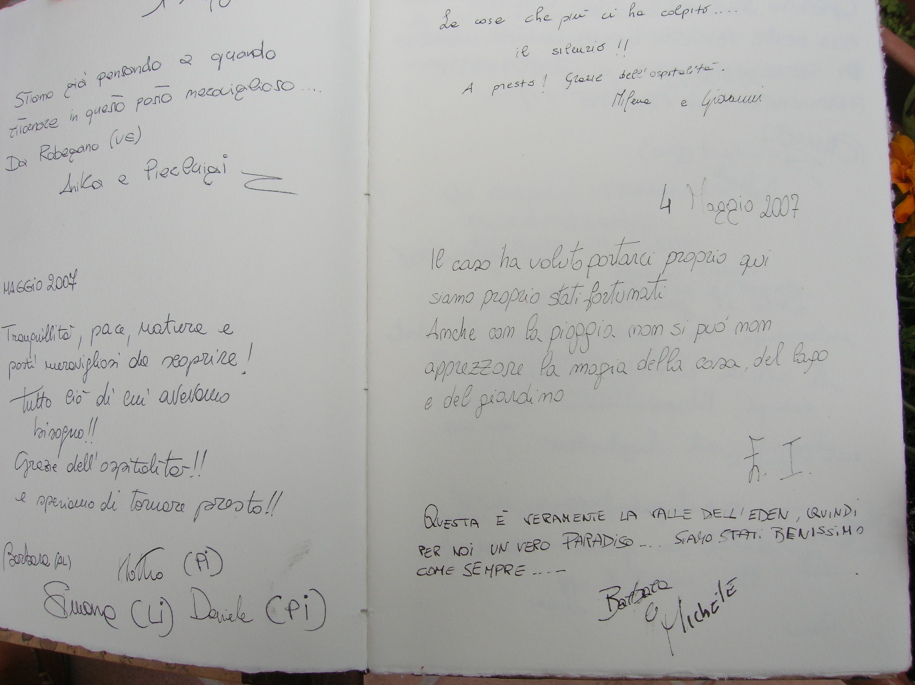 Stiamo già pensando a quando
ritornare in questo posto meraviglioso....
Da Robegano (VE)
Anika e Pierluigi
MAGGIO 2007
Tranquillità, pace, natura e
posti meravigliosi da scoprire!
Tutto ciò di cui avevamo
bisogno!!
Grazie dell'ospitalità!!
e speriamo di tornare presto!!
Barbara
(PI)
Simona (LI) Daniele (PI)
La cosa che più ci ha colpito....
il silenzio!!
A presto! Grazie dell'ospitalità.
Milena e Giovanni
4 Maggio 2007
Il caso ha voluto portarci proprio qui
siamo proprio stati fortunati
Anche con la pioggia non si può non
apprezzare la magia della casa, del lago
e del giardino
F. I.
QUESTA È VERAMENTE LA VALLE DELL'EDEN, QUINDI
PER NOI UN VERO PARADISO.... SIAMO STATI BENISSIMO
COME SEMPRE.....
Barbara
e MICHELE